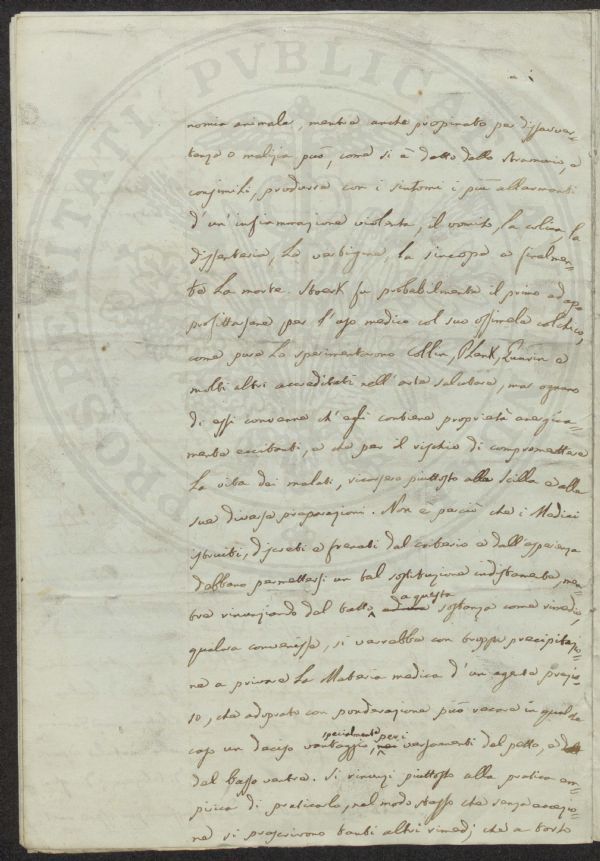 PROSPERITATI PVBLICAE
nomia animale, mentre anche propinato per disavver-
tenza o malizia può, come si è detto dello stramonio, e
consimili, produrre con i sintomi i più allarmanti
d'un'infiammazione violenta, il vomito, la colica, la
dissenteria, la vertigine, la sincope e finalmen-
te la morte. Stoerk fu probabilmente il primo ad ap-
profittarsene per l'uso medico col suo ossimele colchico,
come pure lo sperimentarono Collin, Plenk, Quarin e
molti altri accreditati nell'arte salutare, ma ognuno
di essi convenne ch'egli contiene proprietà energica-
mente eccitanti, e che per il rischio di compromettere
la vita dei malati, ricorsero piuttosto alla Scilla e alle
sue diverse preparazioni. Non è perciò che i Medici
istruiti, discreti e frenati dal criterio e dall'esperienza
debbano permettersi un tal sostituzione indistintamente, men-
tre rinunziando del tutto a questa sostanza come rimedio,
qualora convenisse, si verrebbe con troppa precipitazio-
ne a privare la Materia medica d'un agente prezio-
so, che adoprato con ponderazione può recare in qualche
caso un deciso vantaggio, specialmente per i versamenti del petto, e
del basso ventre. Si rinunzi piuttosto alla pratica em-
pirica di praticarlo, nel modo stesso che senza eccezio-
ne si proscrivono tanti altri rimedj che a torto